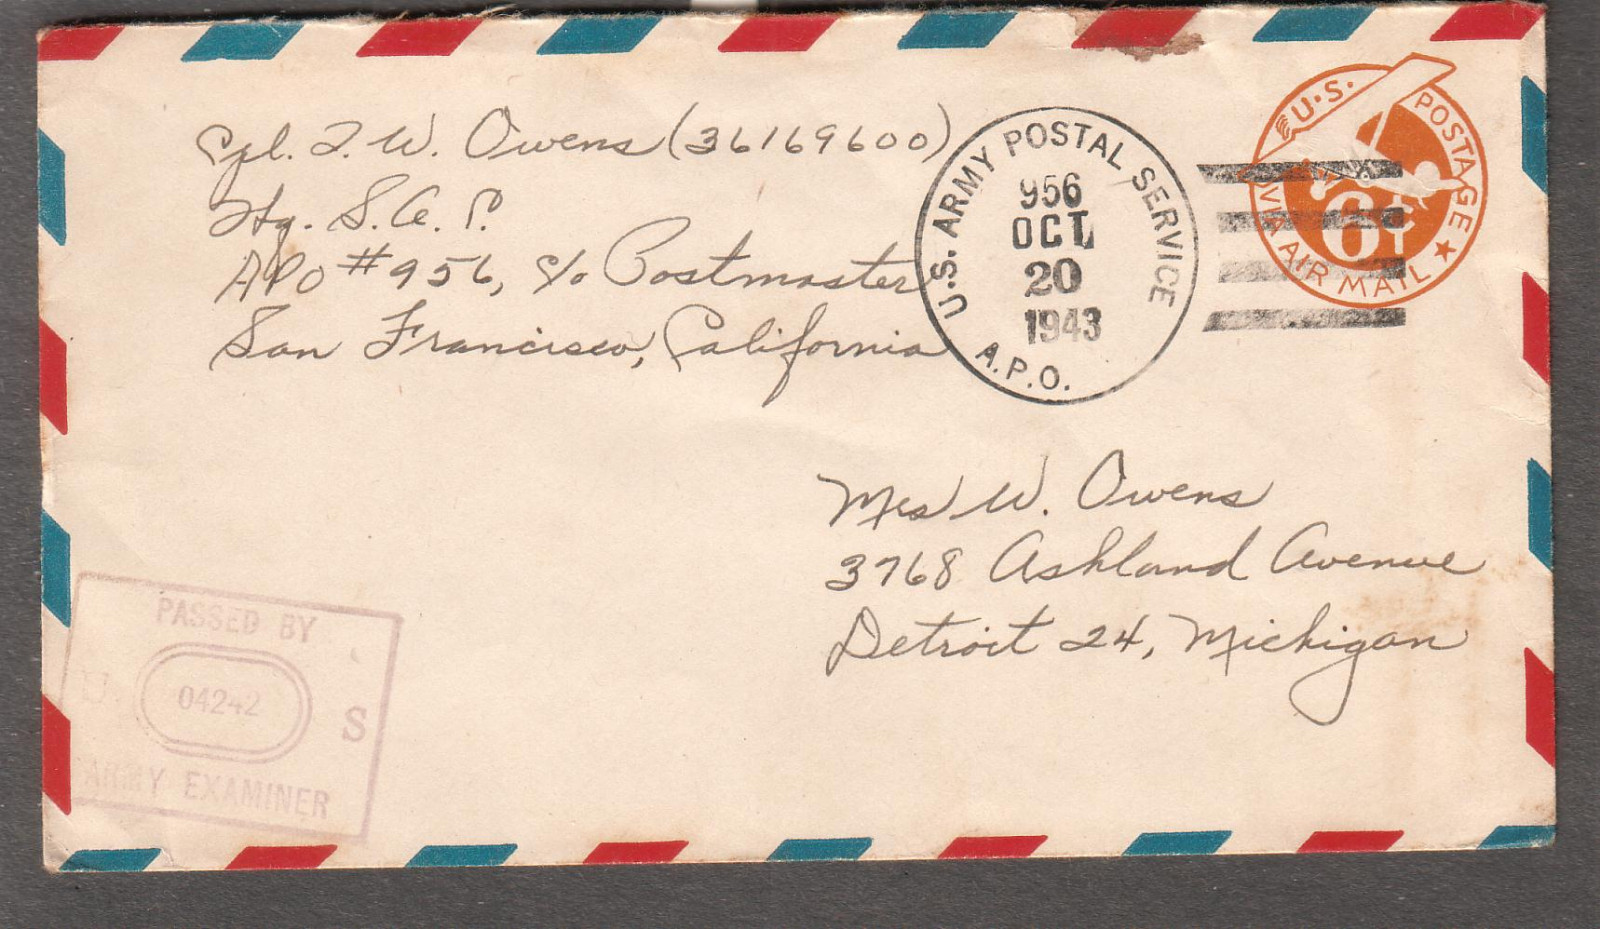 Cpl. T. W. Owens (36169600)
Hq. S. A. P.
APO #956, c/o Postmaster
San Francisco, California
U.S. ARMY POSTAL SERVICE
956
OCT
20
1943
A.P.O.
U.S. POSTAGE
6¢
VIA AIR MAIL
Mrs W. Owens
3768 Ashland Avenue
Detroit 24, Michigan
PASSED BY
U. 04242 S
ARMY EXAMINER